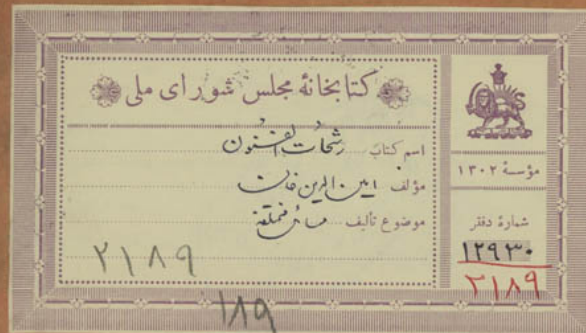 کتابخانهٔ مجلس شورای ملی
اسم کتاب رشحات الفنون
مؤلف امین الدین خان
موضوع تألیف مسائل مختلفه
۲۱۸۹
مؤسسهٔ ۱۳۰۲
شمارهٔ دفتر
۱۲۹۳۰
۲۱۸۹
۱۸۹